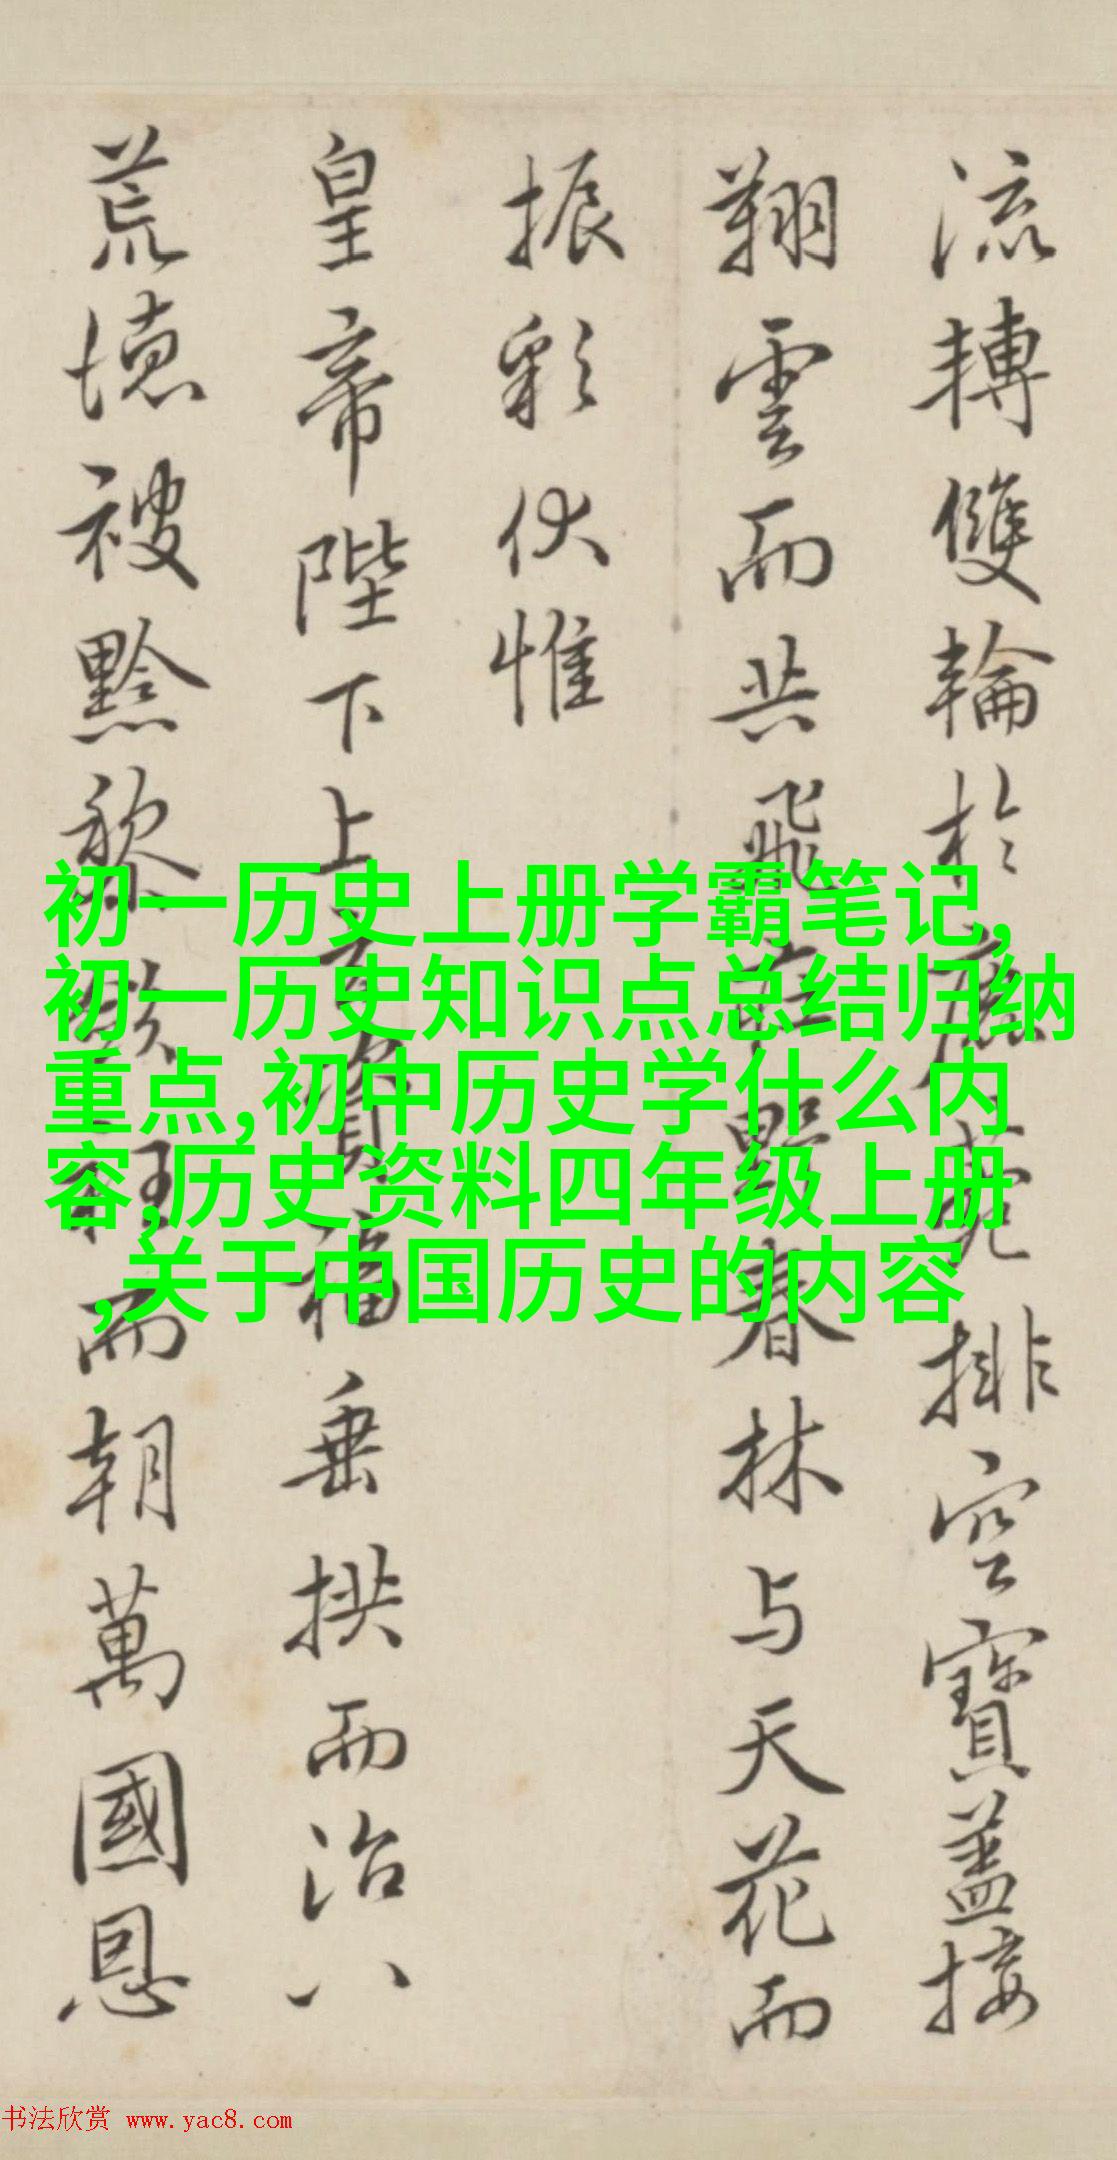 流轉雙輪於鹿苑排空寶蓋接
翔雲而共飛莊春林与天花而
振彩伏惟
皇帝陛下上玄資福垂拱而治八
荒德被黔黎斂衽而朝萬國恩
初一历史上册学霸笔记,
初一历史知识点总结归纳
重点,初中历史学什么内
容,历史资料四年级上册
,关于中国历史的内容
书法欣赏 www.yac8.com